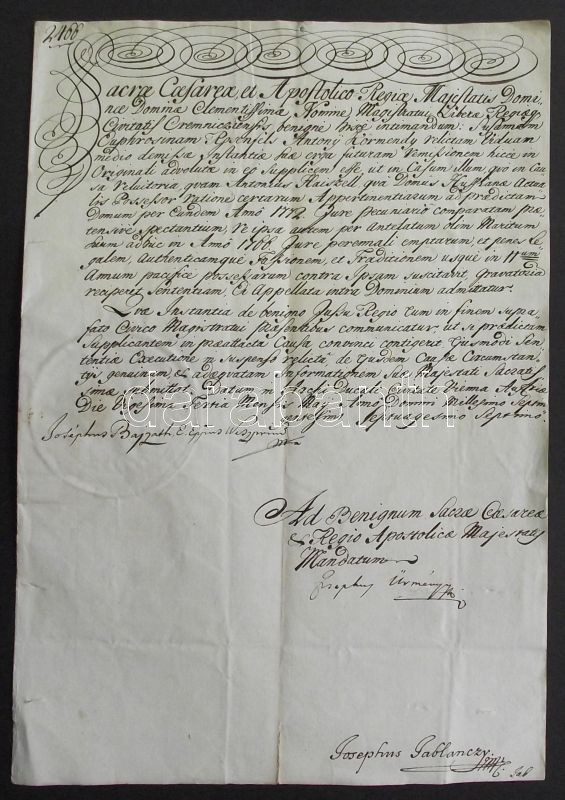 2466
Sacræ Cæsareæ et Apostolico Regiæ Majestatis Domi-
næ Dominæ Clementissimæ Nomine Magistratui Liberæ Regiæq
Civitatis Cremnicziensis benigne hisce intimandum: Susannam
Euphrosinam Antony Körmendy relictam Viduam
medio demissæ Instantiæ suæ erga futuram Remissionem hicce in
Originali advolutæ in eo Supplicem esse, ut in Casum illum, quo in Cau-
sa Revisitoria, quam Antonius qua Domus actua-
lis Possessor ratione certarum Appertinentiarum ad prædictam
Domum per Eundem Anno 1772 Jure pecuniario comparatam præ-
tensive spectantium, Re ipsa autem per Antelatum olim Maritum
suum adhuc in Anno 1766 Jure perennali emptarum, et penes Le-
galem, Authenticamque Fassionem, et Traditionem usque in 11um
Annum pacifice possessarum contra Ipsam suscitavit, gravatoria
reciperet Sententiam, Ei Appellata intra Dominium admittatur.
Quæ Instantia de benigno Jussu Regio Eum in finem supra
fato Civico Magistratui præsentibus communicatur: ut si prædictam
Supplicantem in præattacta Causa convinci contigerit, Ejusmodi Sen-
tentiæ Executione in suspenso relicta de Ejusdem Causæ Circumstan-
tijs genuinam et adæquatam Informationem Suæ Majestati Sacratis-
simæ submittat. Datum in Archi-Ducali Civitate Vienna Austriæ
Die Vigesima Tertia Mensis Anno Domini Millesimo Septin-
gentesimo Septuagesimo Septimo.
Josephus Bajzath E. Eppus Weszprim
Ad Benignum Sacræ Cæsareæ
& Regio Apostolicæ Majestatis
Mandatum
Josephus Ürményi
Josephus Jablanczy.
darabanth